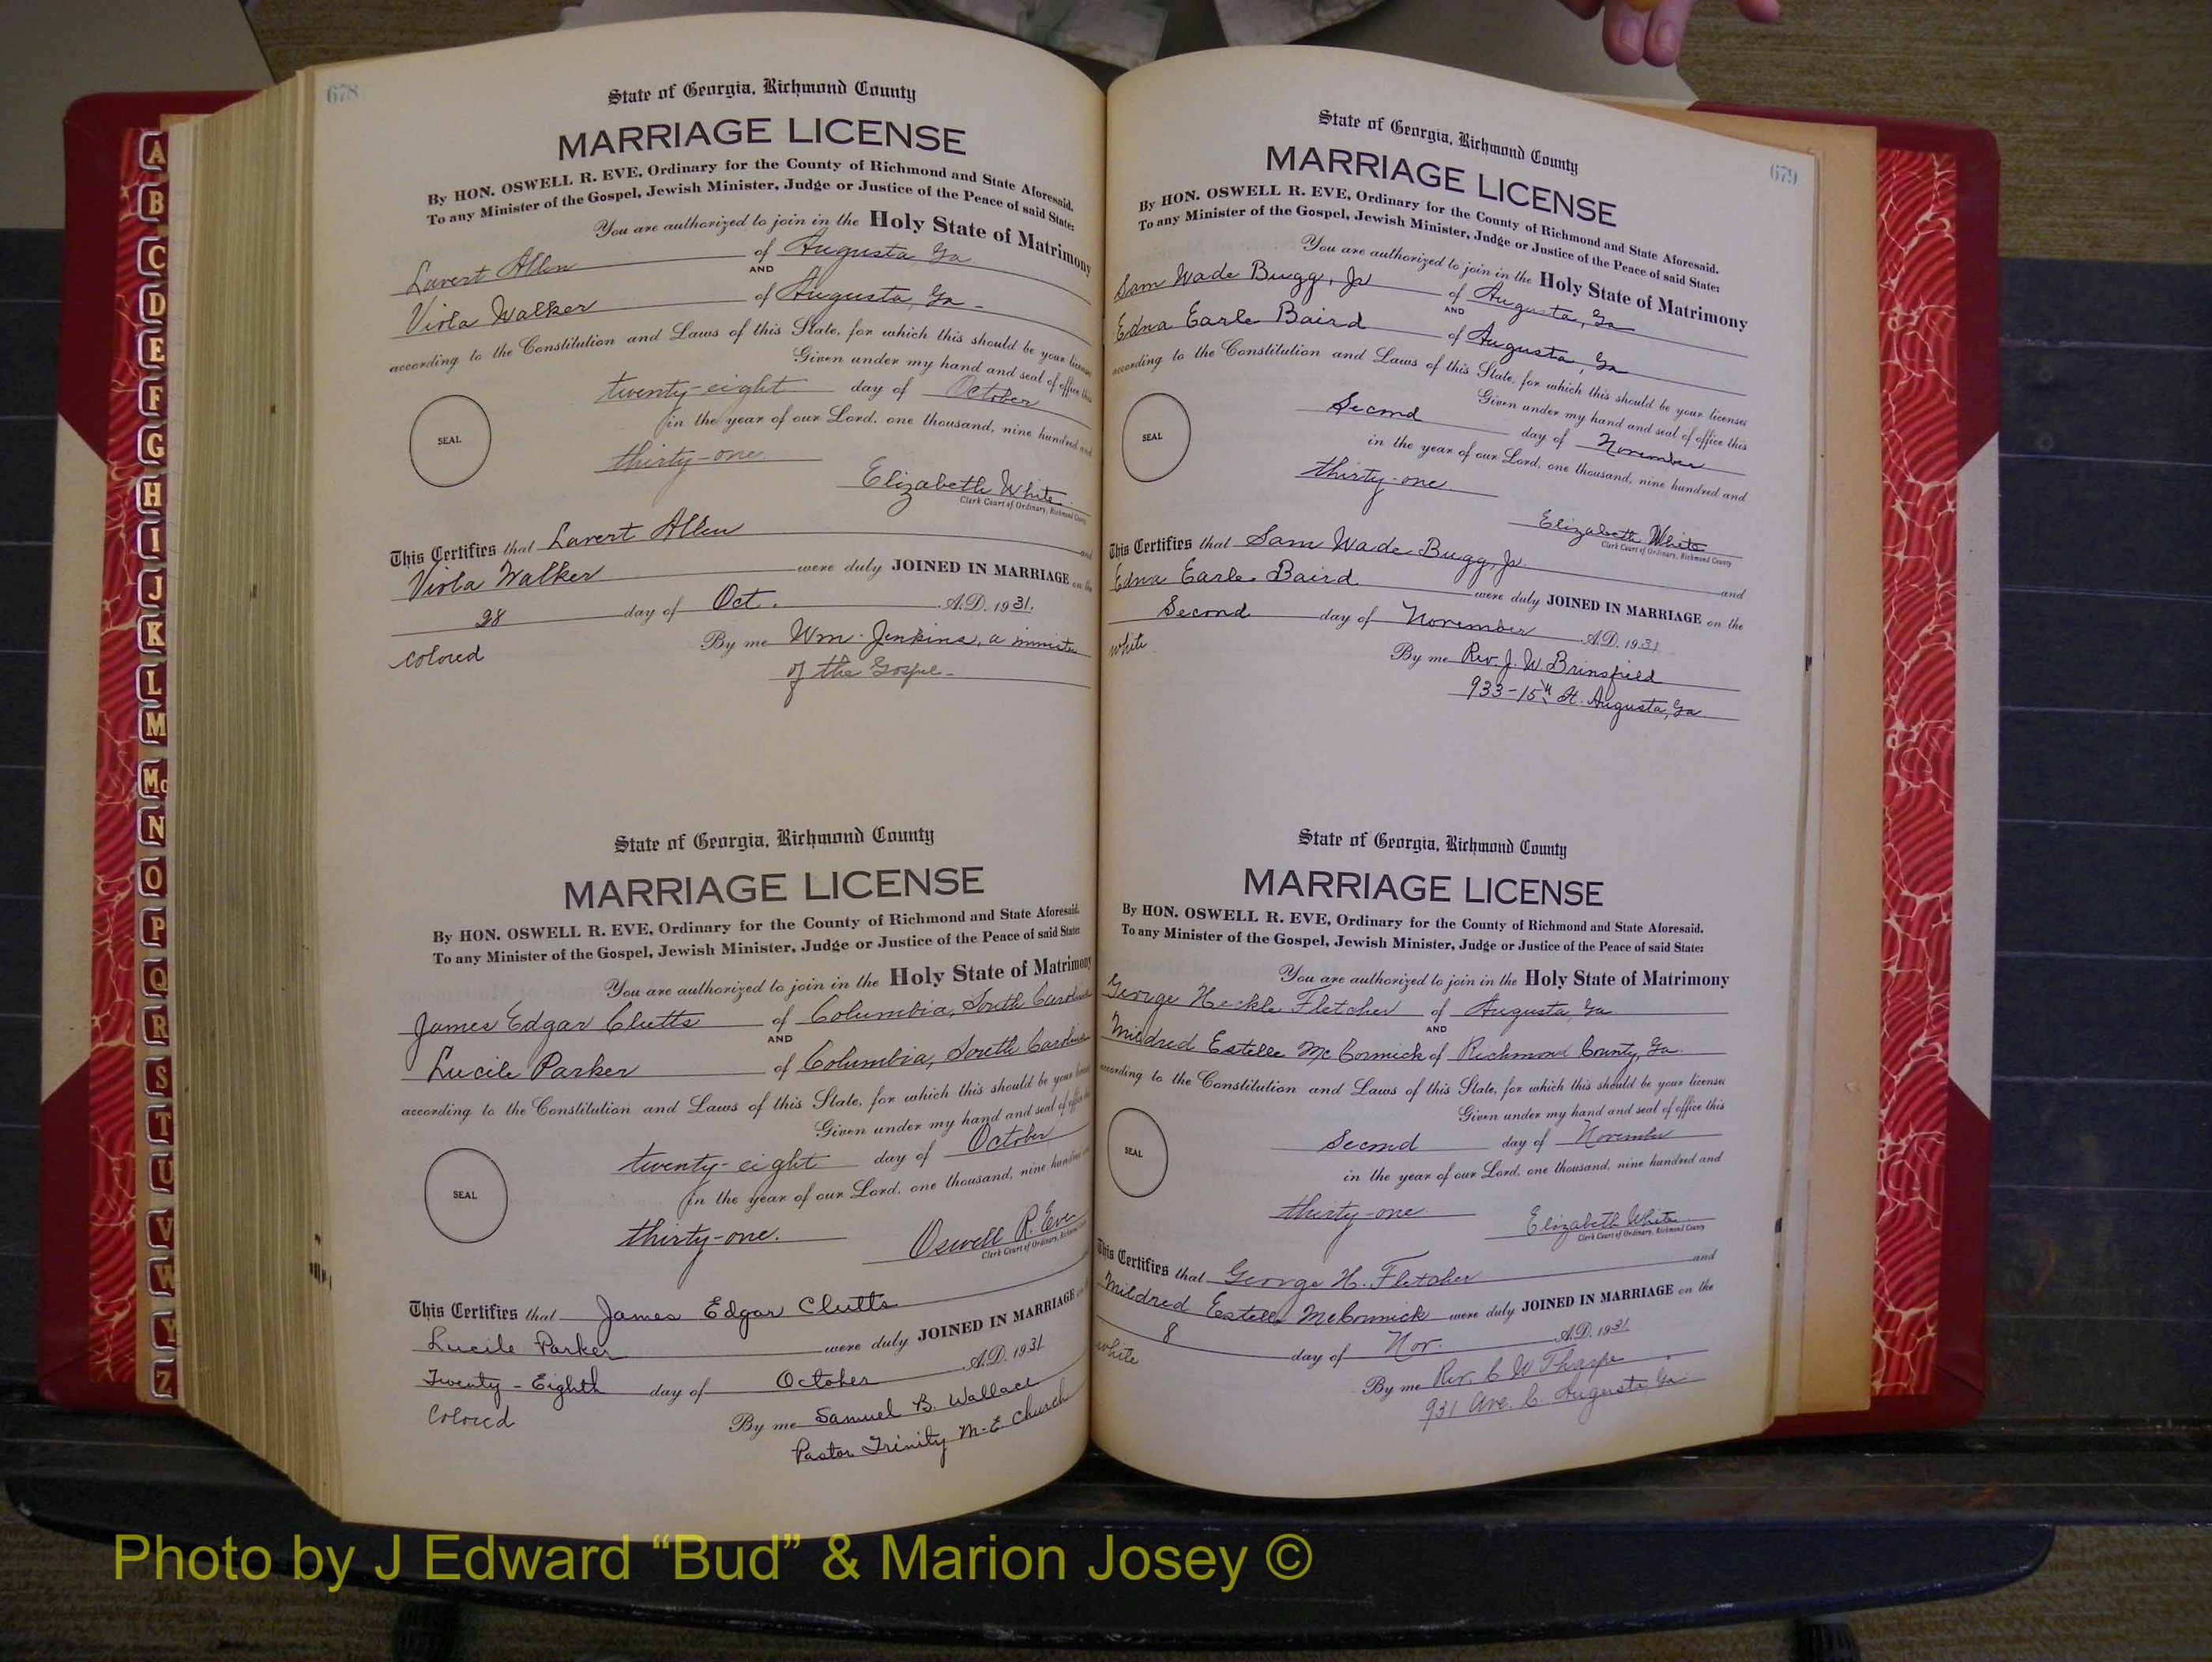 A
B
C
D
E
F
G
H
I
J
K
L
M
Mc
N
O
P
Q
R
S
T
U
V
W
Y
Z
678
State of Georgia, Richmond County
MARRIAGE LICENSE
By HON. OSWELL R. EVE, Ordinary for the County of Richmond and State Aforesaid.
To any Minister of the Gospel, Jewish Minister, Judge or Justice of the Peace of said State:
You are authorized to join in the Holy State of Matrimony
Lavert Allen of Augusta Ga
AND
Viola Walker of Augusta, Ga -
according to the Constitution and Laws of this State, for which this should be your license
Given under my hand and seal of office this
twenty-eight day of October
in the year of our Lord, one thousand, nine hundred and
SEAL
thirty-one
Elizabeth White
Clerk Court of Ordinary, Richmond County
This Certifies that Lavert Allen and
Viola Walker were duly JOINED IN MARRIAGE on the
28 day of Oct. A.D. 1931.
colored By me Wm. Jenkins, a minister
of the Gospel -
State of Georgia, Richmond County
MARRIAGE LICENSE
By HON. OSWELL R. EVE, Ordinary for the County of Richmond and State Aforesaid.
To any Minister of the Gospel, Jewish Minister, Judge or Justice of the Peace of said State:
You are authorized to join in the Holy State of Matrimony
James Edgar Clutts of Columbia, South Carolina
AND
Lucile Parker of Columbia, South Carolina
according to the Constitution and Laws of this State, for which this should be your
Given under my hand and seal of office
twenty-eight day of October
SEAL
in the year of our Lord, one thousand, nine hundred
thirty-one.
Oswell R. Eve
Clerk Court of Ordinary, Richmond
This Certifies that James Edgar Clutts
Lucile Parker were duly JOINED IN MARRIAGE
Twenty-Eighth day of October A.D. 1931
Colored By me Samuel B. Wallace
Pastor Trinity M-E Church
679
State of Georgia, Richmond County
MARRIAGE LICENSE
By HON. OSWELL R. EVE, Ordinary for the County of Richmond and State Aforesaid.
To any Minister of the Gospel, Jewish Minister, Judge or Justice of the Peace of said State:
You are authorized to join in the Holy State of Matrimony
Sam Wade Bugg, Jr of Augusta, Ga
AND
Edna Earle Baird of Augusta, Ga
according to the Constitution and Laws of this State, for which this should be your licenses
Given under my hand and seal of office this
Second day of November
SEAL
in the year of our Lord, one thousand, nine hundred and
thirty-one
Elizabeth White
Clerk Court of Ordinary, Richmond County
This Certifies that Sam Wade Bugg, Jr. and
Edna Earle Baird were duly JOINED IN MARRIAGE on the
Second day of November A.D. 1931
white By me Rev. J. W. Brinsfield
933-15th St. Augusta, Ga
State of Georgia, Richmond County
MARRIAGE LICENSE
By HON. OSWELL R. EVE, Ordinary for the County of Richmond and State Aforesaid.
To any Minister of the Gospel, Jewish Minister, Judge or Justice of the Peace of said State:
You are authorized to join in the Holy State of Matrimony
George Heckle Fletcher of Augusta, Ga
AND
Mildred Estelle McCormick of Richmond County, Ga.
according to the Constitution and Laws of this State, for which this should be your licenses
Given under my hand and seal of office this
Second day of November
SEAL
in the year of our Lord, one thousand, nine hundred and
thirty-one
Elizabeth White
Clerk Court of Ordinary, Richmond County
This Certifies that George H. Fletcher and
Mildred Estelle McCormick were duly JOINED IN MARRIAGE on the
8 day of Nov. A.D. 1931
white By me Rev. C W Tharpe
931 Ave. C. Augusta, Ga.
Photo by J Edward “Bud” & Marion Josey ©